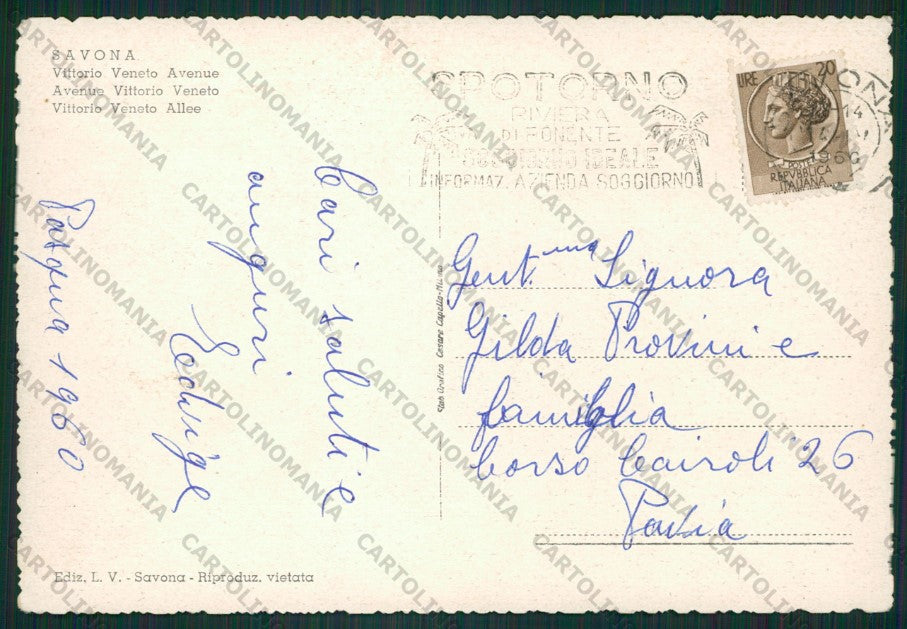 SAVONA
Vittorio Veneto Avenue
Avenue Vittorio Veneto
Vittorio Veneto Allee
SPOTORNO
RIVIERA
DI PONENTE
SOGGIORNO IDEALE
INFORMAZ. AZIENDA SOGGIORNO
LIRE 20
POSTE
REPVBBLICA
ITALIANA
14
1960
Cari saluti e
auguri
Edvige
Pasqua 1960
Gent.ma Signora
Gilda Provini e
famiglia
Corso Cairoli 26
Pavia
Ediz. L. V. - Savona - Riproduz. vietata
CARTOLINOMANIA